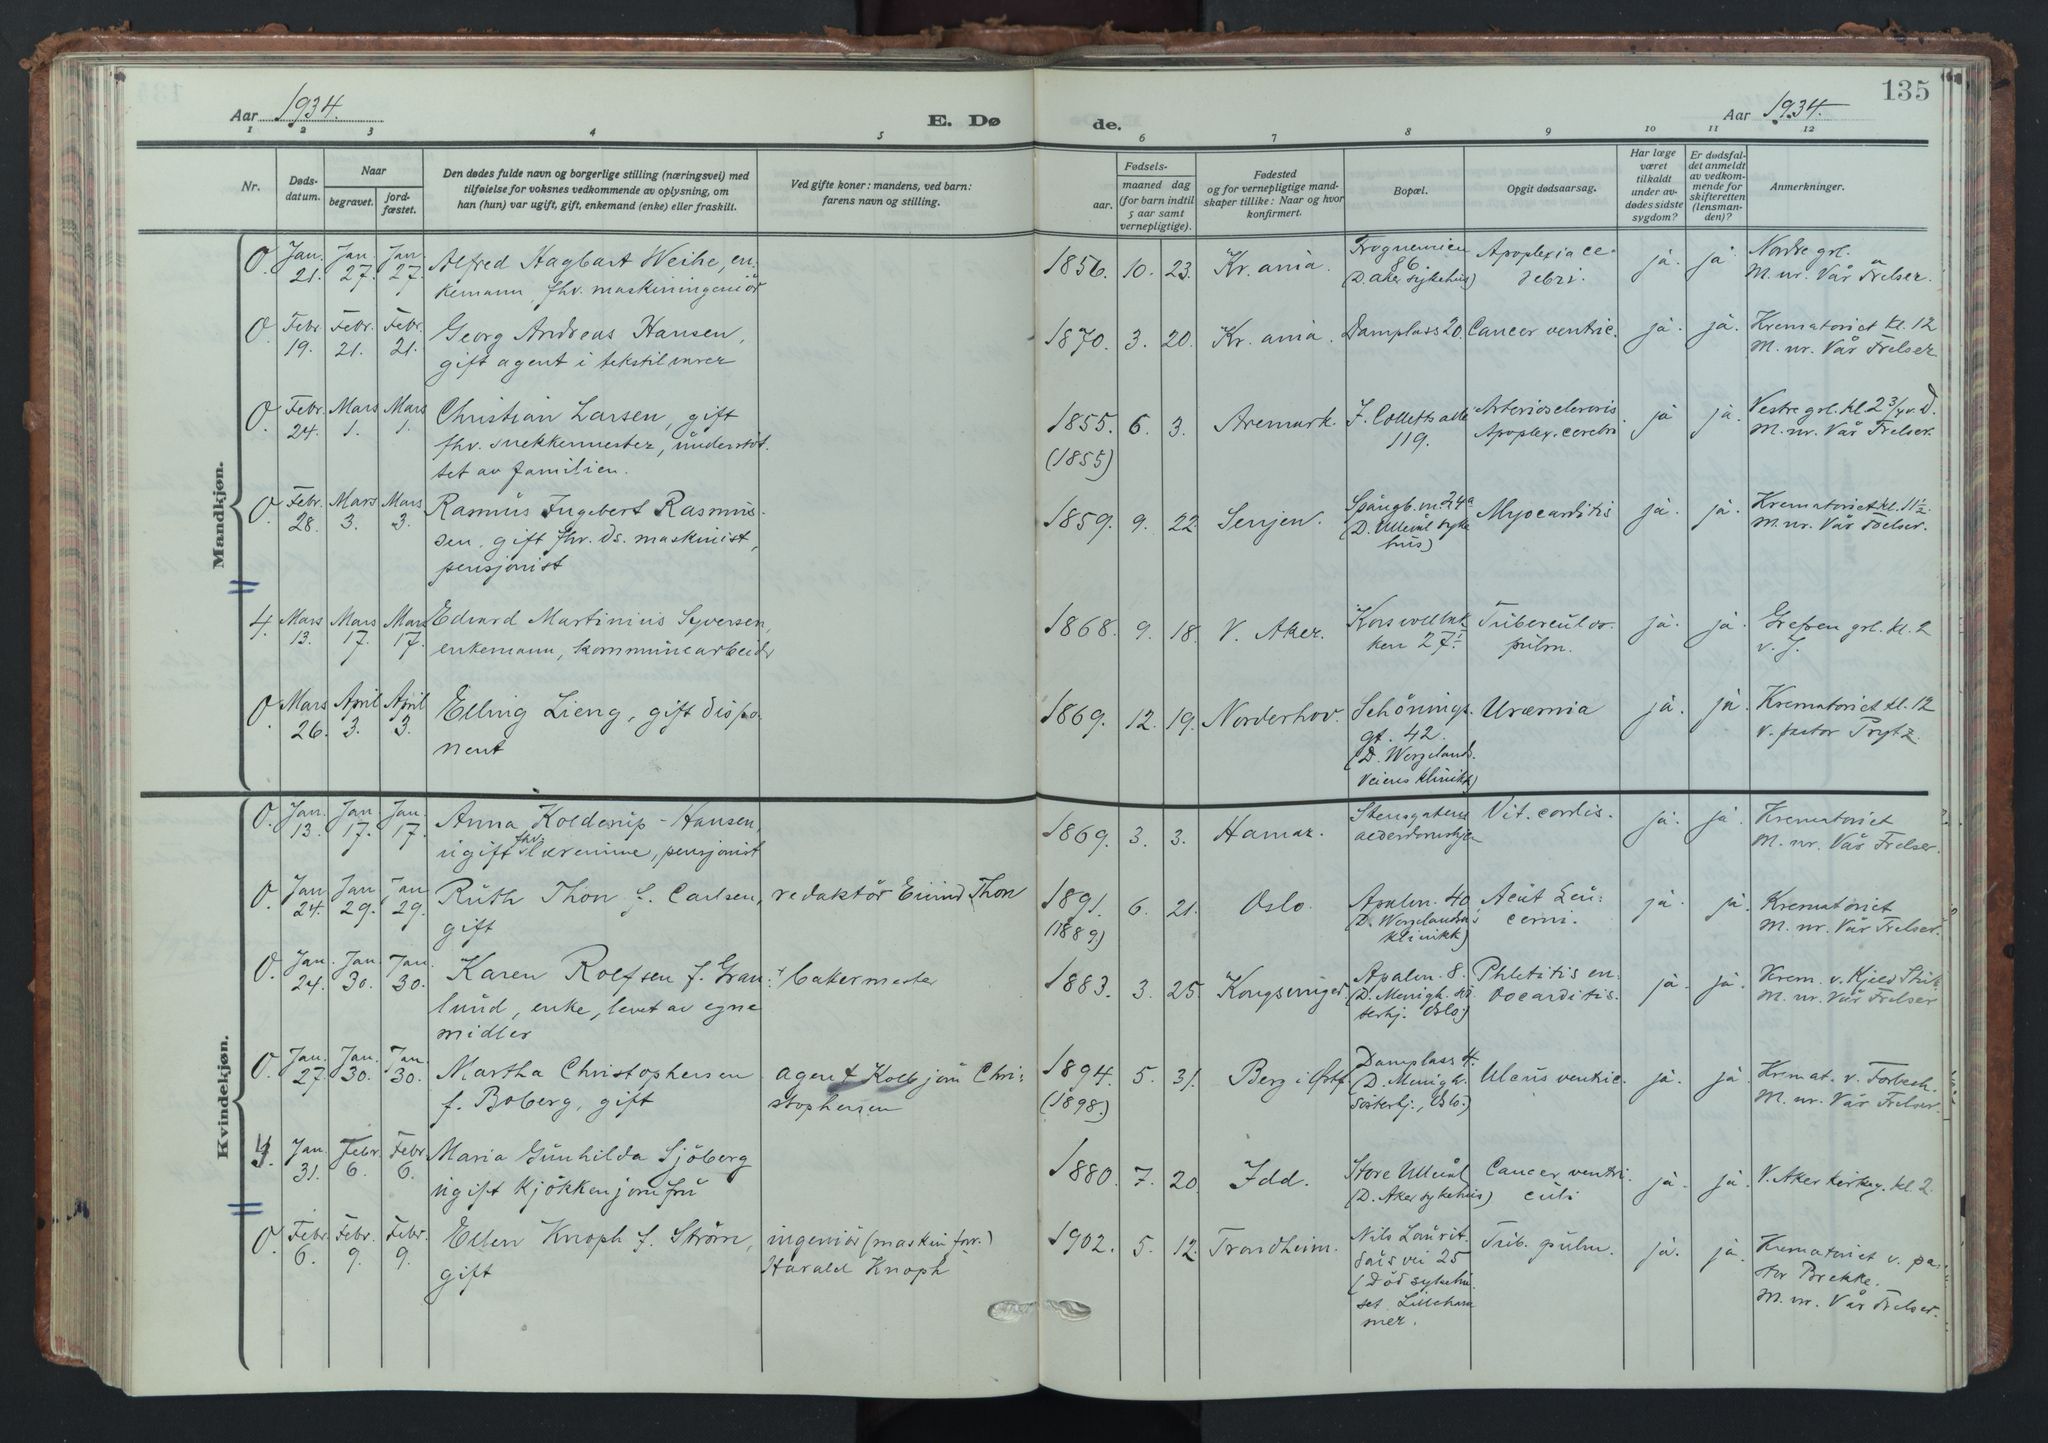 135
Aar 1934.
E. Dø
de.
Aar 1934.
1 2 3 4 5 6 7 8 9 10 11 12
Nr.
Døds-
datum.
Naar
begravet.
jord-
fæstet.
Den dødes fulde navn og borgerlige stilling (næringsvei) med
tilføielse for voksnes vedkommende av oplysning, om
han (hun) var ugift, gift, enkemand (enke) eller fraskilt.
Ved gifte koner: mandens, ved barn:
farens navn og stilling.
Fødsels-
aar.
maaned dag
(for barn indtil
5 aar samt
vernepligtige).
Fødested
og for vernepligtige mand-
skaper tillike: Naar og hvor
konfirmert.
Bopæl.
Opgit dødsaarsag.
Har læge
været
tilkaldt
under av-
dødes sidste
sygdom?
Er dødsfal-
det anmeldt
av vedkom-
mende for
skifteretten
(lensman-
den)?
Anmerkninger.
Mandkjøn.
0. Jan. 21. Jan. 27. Jan. 27.
Alfred Hagbart Weihe, en-
kemann, fhv. maskiningeniör
1856. 10. 23. Kr.ania.
Frognerveien
86
(D. Aker sykehus)
Apoplexia ce-
rebri.
ja. ja.
Nordre grl.
M. nr. Vår Frelser.
0. Febr. 19. Febr. 21. Febr. 21.
Georg Andreas Hansen,
gift agent i tekstilvarer
1870. 3. 20. Kr.ania. Damplass 20. Cancer ventric. ja. ja.
Krematoriet kl. 12
M. nr. Vår Frelser
0. Febr. 24. Mars 1. Mars 1.
Christian Larsen, gift
fhv. snekkermester, understöt-
tet av familien.
1855. 6. 3. Aremark.
(1855)
J. Colletts alle
119.
Arteriosclerosis
Apoplex. cerebri
ja ja.
Vestre grl. kl. 2 3/4 v. D.
M. nr. Vår Frelser.
0. Febr. 28. Mars 3. Mars 3.
Rasmus Ingebert Rasmus-
sen, gift fhv. ds. maskinist,
pensjonist
1859. 9. 22. Senjen.
Spångb.m. 24a
(D. Ullevål syke
hus)
Myocarditis ja. ja.
Krematoriet kl. 11½
M. nr. Vår Frelser.
4. Mars 13. Mars 17. Mars 17.
Edvard Martinius Syversen,
enkemann, kommunearbeider
1868. 9. 18. V. Aker.
Korsvollbak
ken 27.I
Tuberculos.
pulm.
ja. ja.
Grefsen grl. kl. 2
v. J.
0. Mars 26. April 3. April 3.
Elling Lieng, gift dispo-
nent
1869. 12. 19. Norderhov.
Schönings-
gt. 42.
(D. Wergelands-
veiens klinikk)
Uræmia ja. ja.
Krematoriet kl. 12
v. pastor Prytz.
Kvindekjøn.
0. Jan. 13. Jan. 17. Jan. 17.
Anna Kolderup-Hansen,
ugift fhv. lærerinne, pensjonist
1869. 3. 3. Hamar.
Stensgatens
aldersdomshjem
Vit. cordis. ja. ja.
Krematoriet
M. nr. Vår Frelser.
0. Jan. 24. Jan. 29. Jan. 29.
Ruth Thon f. Carlsen,
gift
redaktör Eivind Thon
1891. 6. 21. Oslo.
(1889)
Apalv. 40
(D. Wergelandsv.s
klinikk)
Acut Leu-
cemi.
ja. ja.
Krematoriet
M. nr. Vår Frelser.
0. Jan. 24. Jan. 30. Jan. 30.
Karen Rolfsen f. Gran-
lund, enke, levet av egne
midler
bakermester
1883. 3. 25. Kongsvinger
Apalv. 8.
(D. Menigh. sö-
sterhj. Oslo)
Phlebitis en-
docarditis.
ja. ja.
Krem. v. Kjeld Stub
M. nr. Vår Frelser
0. Jan. 27. Jan. 30. Jan. 30.
Martha Christophersen
f. Boberg, gift
agent Kolbjörn Chri-
stophersen
1894. 5. 31. Berg i Østf.
(1898.)
Damplass 4.
(D. Menigh.
Sösterhj., Oslo.)
Ulcus ventric. ja. ja.
Kremat. v. Forbech.
M. nr. Vår Frelser.
3. Jan. 31. Febr. 6. Febr. 6.
Maria Gunhilda Sjöberg
ugift kjökkenjomfru
1880. 7. 20. Idd.
Store Ullevål
(D. Aker sykehus)
Cancer ventri-
culi
ja. ja.
V. Aker kirkeg. kl. 2.
0. Febr. 6. Febr. 9. Febr. 9.
Ellen Knoph f. Ström,
gift
ingeniör (maskinforr.)
Harald Knoph
1902. 5. 12. Trondheim.
Nils Laurit-
søns vei 25
(död sykehu-
set. Lilleham
mer.
Tub. pulm. ja. ja.
Krematoriet v. pa-
stor Brekke.
M. nr. Vår Frelser.